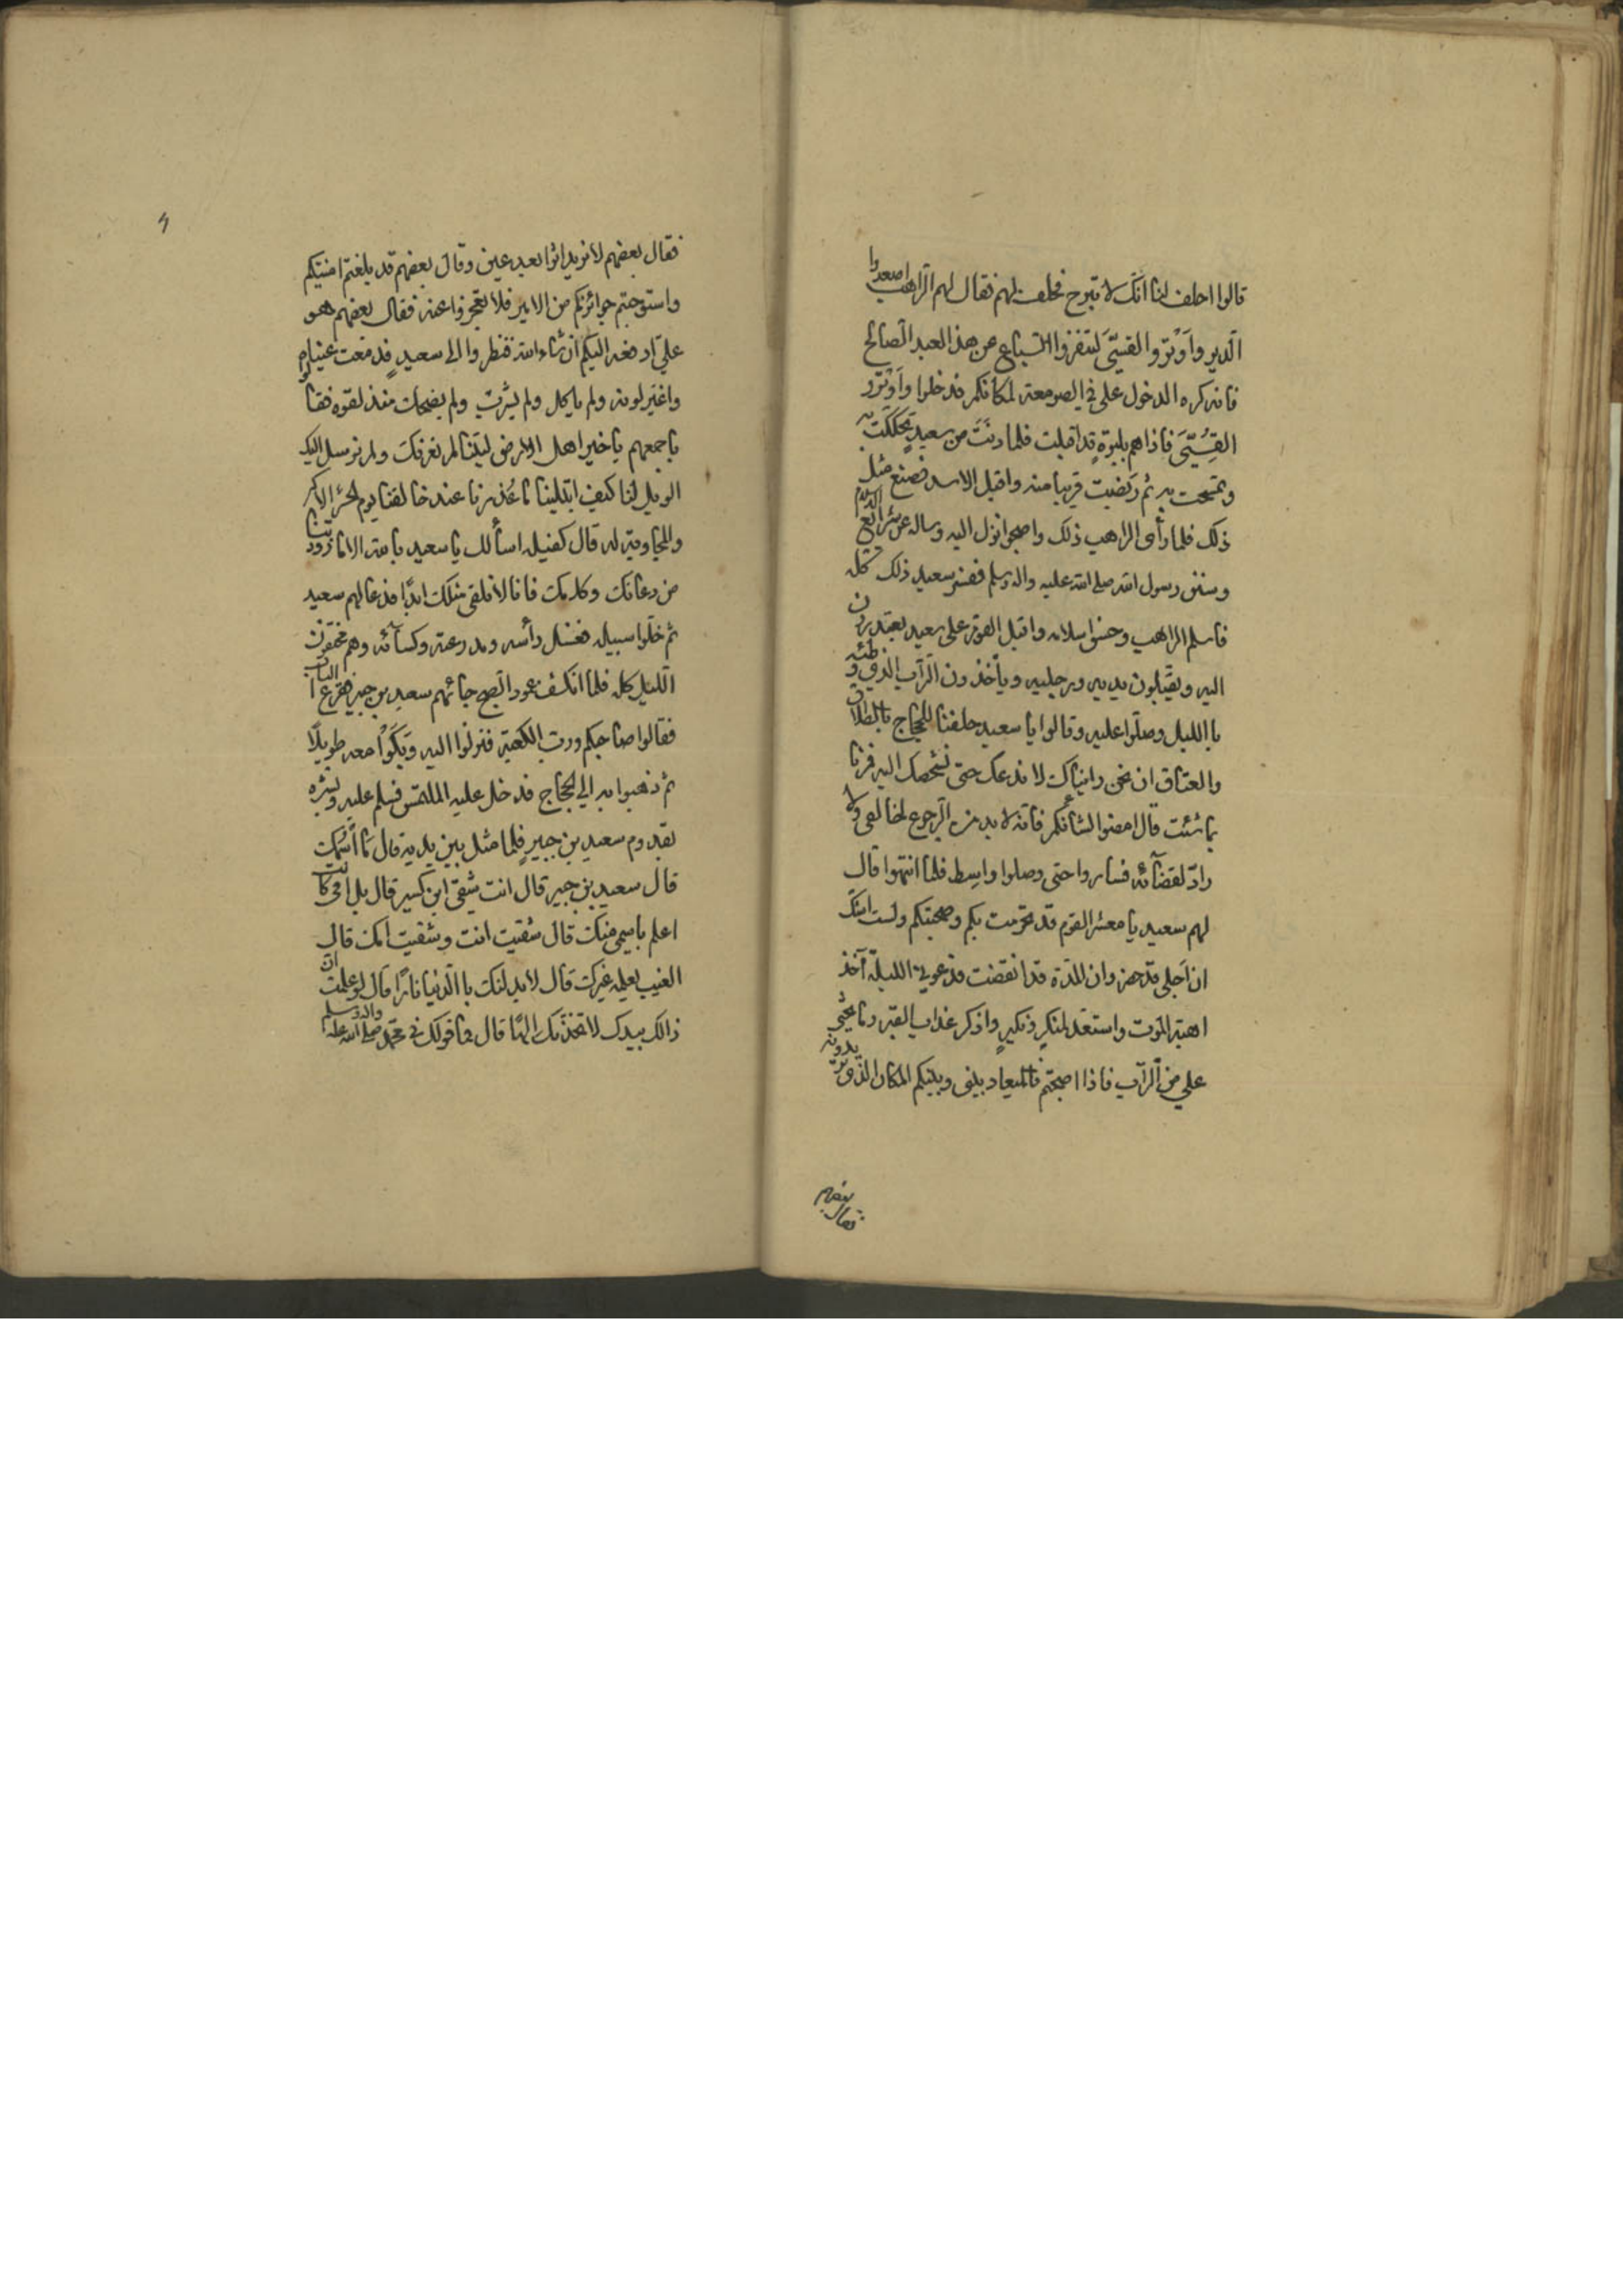 قالوا احلف لنا انّك لا تبرح فحلف لهم فقال لهم الرّاهب اصعدوا
الدّير واَوْترّوا القسِيّ لتنفرّوا السّباع عن هذا العبد الصّالح
فانه كره الدخول علي في الصومعة لمكانكم فدخلوا واَوْترّوا
القِسِيّ فاذا هم بلبوَةٍ قد اقبلت فلما دنَت من سعيدٍ تحكّكت به
وتمسّحت به ثم ربضت قريبا منه واقبل الاسد فصنع مثل
ذلك فلما رأى الراهب ذلك واصبحوا نزل اليه وساله عن شرائع
وسنن رسول الله صلى الله عليه واله وسلم ففسّر سعيد ذلك كلّه
فاسلم الراهب وحسن اسلامه واقبل القوم على سعيد يعتذرون
اليه ويقبّلون يديه ورجليه ويأخذون التراب الذي وطئه
باالليل وصلّوا عليه وقالوا يا سعيد حلفنا للحجاج بالطلاق
والعتاق ان نحن رايناك لا ندعك حتى نشخصك اليه فمرنا
بما شئت قال امضوا لشأنكم فانّه لا بد من الرّجوع لخالقي ولا
رادّ لقضآئه فساروا حتى وصلوا واسط فلما انتهوا قال
لهم سعيد يا معشر القوم قد تحرّمت بكم وصحبتكم ولست اشكّ
ان اَجلي قد حضر وان المدّة قد انقضت فدعوني الليلة آخذ
اهبة الموت واستعد لمنكرٍ ونكيرٍ واذكر عذاب القبر وما يحثى
علي من التّراب فاذا اصبحتم فالميعاد بيني وبينكم المكان الذي تريدونه
فقال بعضهم
فقال بعضهم لا نريد اثرا بعد عين وقال بعضهم قد بلغتم امنيتكم
واستوجبتم جوائزكم من الامير فلا تعجزوا عنه فقال بعضهم هو
عليّ ادفعه اليكم ان شاء الله فنظروا الى سعيدٍ قد دمعت عيناه
واغبّر لونه ولم ياكل ولم يشرب ولم يضحك منذ لقوه فقالوا
باجمعهم يا خير اهل الارض ليتنا لم نعرفك ولم نرسل اليك
الويل لنا كيف ابتلينا ما عُذرنا عند خالقنا يوم الحشر الاكبر
قال كفيله اسألك يا سعيد بالله الا ما زودتنا
من دعائك وكلامك فانا لا نلقى مثلك ابدًا فدعا لهم سعيد
ثم خلّوا سبيله فغسل رأسه ومدرعته وكسآئه وهم مختفون
اللّيل كله فلما انكشف عمود الصّبح جائهم سعيد بن جبير فقرع الباب
فقالوا صاحبكم وربّ الكعبة فنزلوا اليه وبَكَوْا معه طويلًا
ثم ذهبوا به الى الحجاج فدخل عليه الملتمس فسلم عليه وبشّره
بقدوم سعيد بن جبيرٍ فلما مثل بين يديه قال ما اسمك
قال سعيد بن جبير قال انت شقيّ ابن كسير قال بل امي كانت
اعلم باسمي منك قال شقيت انت وشقيت امك قال
الغيب يعلمه غيرك قال لابدلنك باالّدنيا نارًا قال لو علمت انّ
ذالك بيدك لاتخذّتك الهًا قال فما قولك في محمّد صلى الله عليه واله وسلم